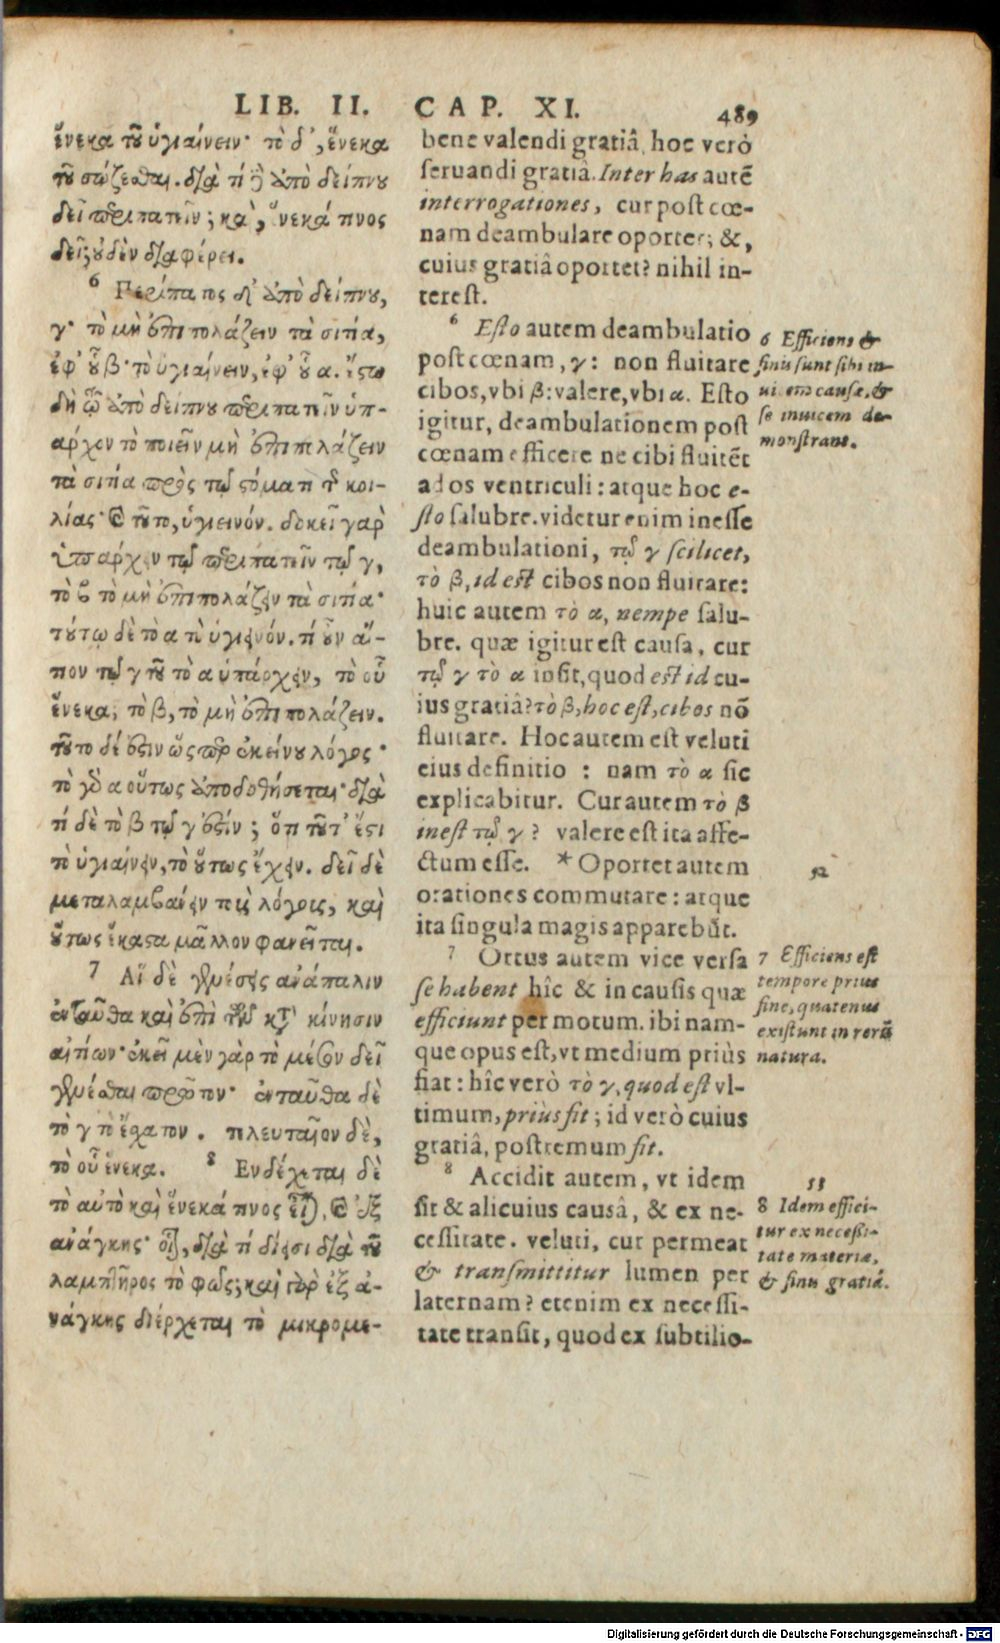 LIB. II. CAP. XI. 489
ἕνεκα τοῦ ὑγιαίνειν· τὸ δ', ἕνεκα
τοῦ σώζεσθαι. διὰ τί ἢ ἀπὸ δείπνου
δεῖ περιπατεῖν; καὶ, ἕνεκά τινος
δεῖ; οὐδὲν διαφέρει.
6 Περίπατος δὴ ἀπὸ δείπνου,
γ· τὸ μὴ ἐπιπολάζειν τὰ σιτία,
ἐφ' οὗ β· τὸ ὑγιαίνειν, ἐφ' οὗ α. ἔστω
δὴ τῷ ἀπὸ δείπνου περιπατεῖν ὑπ-
άρχον τὸ ποιεῖν μὴ ἐπιπολάζειν
τὰ σιτία πρὸς τῷ στόματι τῆς κοι-
λίας· καὶ τοῦτο, ὑγιεινόν. δοκεῖ γὰρ
ὑπάρχειν τῷ περιπατεῖν τῷ γ,
τὸ β τὸ μὴ ἐπιπολάζειν τὰ σιτία·
τούτῳ δὲ τὸ α τὸ ὑγιεινόν. τί οὖν αἴ-
τιον τῷ γ τοῦ τὸ α ὑπάρχειν, τὸ οὗ
ἕνεκα; τὸ β, τὸ μὴ ἐπιπολάζειν.
τοῦτο δέ ἐστιν ὥσπερ ἐκείνου λόγος·
τὸ γὰρ α οὕτως ἀποδοθήσεται· διὰ
τί δὲ τὸ β τῷ γ ἐστίν; ὅτι τοῦτ' ἔστι
τὸ ὑγιαίνειν, τὸ οὕτως ἔχειν. δεῖ δὲ
μεταλαμβάνειν τοὺς λόγους, καὶ
οὕτως ἕκαστα μᾶλλον φανεῖται.
7 Αἱ δὲ γενέσεις ἀνάπαλιν
ἐνταῦθα καὶ ἐπὶ τῶν κατὰ κίνησιν
αἰτίων· ἐκεῖ μὲν γὰρ τὸ μέσον δεῖ
γενέσθαι πρῶτον· ἐνταῦθα δὲ
τὸ γ τὸ ἔσχατον. τελευταῖον δὲ,
τὸ οὗ ἕνεκα. 8 Ενδέχεται δὲ
τὸ αὐτὸ καὶ ἕνεκά τινος εἶναι, καὶ ἐξ
ἀνάγκης· οἷον, διὰ τί δίεισι διὰ τοῦ
λαμπτῆρος τὸ φῶς; καὶ γὰρ ἐξ ἀ-
νάγκης διέρχεται τὸ μικρομε-
bene valendi gratiâ, hoc verò
seruandi gratiâ. Inter has autē
interrogationes, cur post cœ-
nam deambulare oportet; &,
cuius gratiâ oportet? nihil in-
terest.
6 Esto autem deambulatio
post cœnam, γ: non fluitare
cibos, vbi β: valere, vbi α. Esto
igitur, deambulationem post
cœnam efficere ne cibi fluitēt
ad os ventriculi: atque hoc e-
sto salubre. videtur enim inesse
deambulationi, τῷ γ scilicet,
τὸ β, id est cibos non fluitare:
huic autem τὸ α, nempe salu-
bre. quæ igitur est causa, cur
τῷ γ τὸ α insit, quod est id cu-
ius gratiâ? τὸ β, hoc est, cibos nō
fluitare. Hoc autem est veluti
eius definitio : nam τὸ α sic
explicabitur. Cur autem τὸ β
inest τῷ γ? valere est ita affe-
ctum esse. * Oportet autem
orationes commutare: atque
ita singula magis apparebūt.
7 Ortus autem vice versa
se habent hîc & in causis quæ
efficiunt per motum. ibi nam-
que opus est, vt medium priùs
fiat: hîc verò τὸ γ, quod est vl-
timum, priùs fit; id verò cuius
gratiâ, postremum fit.
8 Accidit autem, vt idem
sit & alicuius causâ, & ex ne-
cessitate. veluti, cur permeat
& transmittitur lumen per
laternam? etenim ex necessi-
tate transit, quod ex subtilio-
6 Efficiens &
finis sunt sibi in-
uicem causæ, &
se inuicem de-
monstrant.
52
7 Efficiens est
tempore prius
fine, quatenus
existunt in rerū
natura.
53
8 Idem effici-
tur ex necessi-
tate materiæ,
& finis gratiâ.
Digitalisierung gefördert durch die Deutsche Forschungsgemeinschaft - DFG